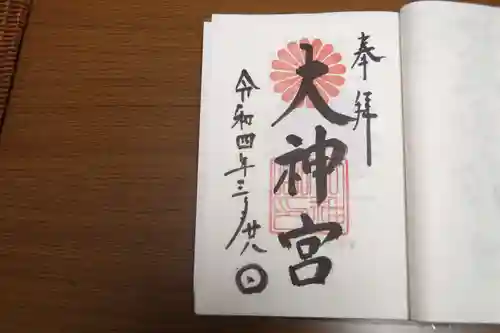 奉拝
大神宮
令和四年三月廿八日